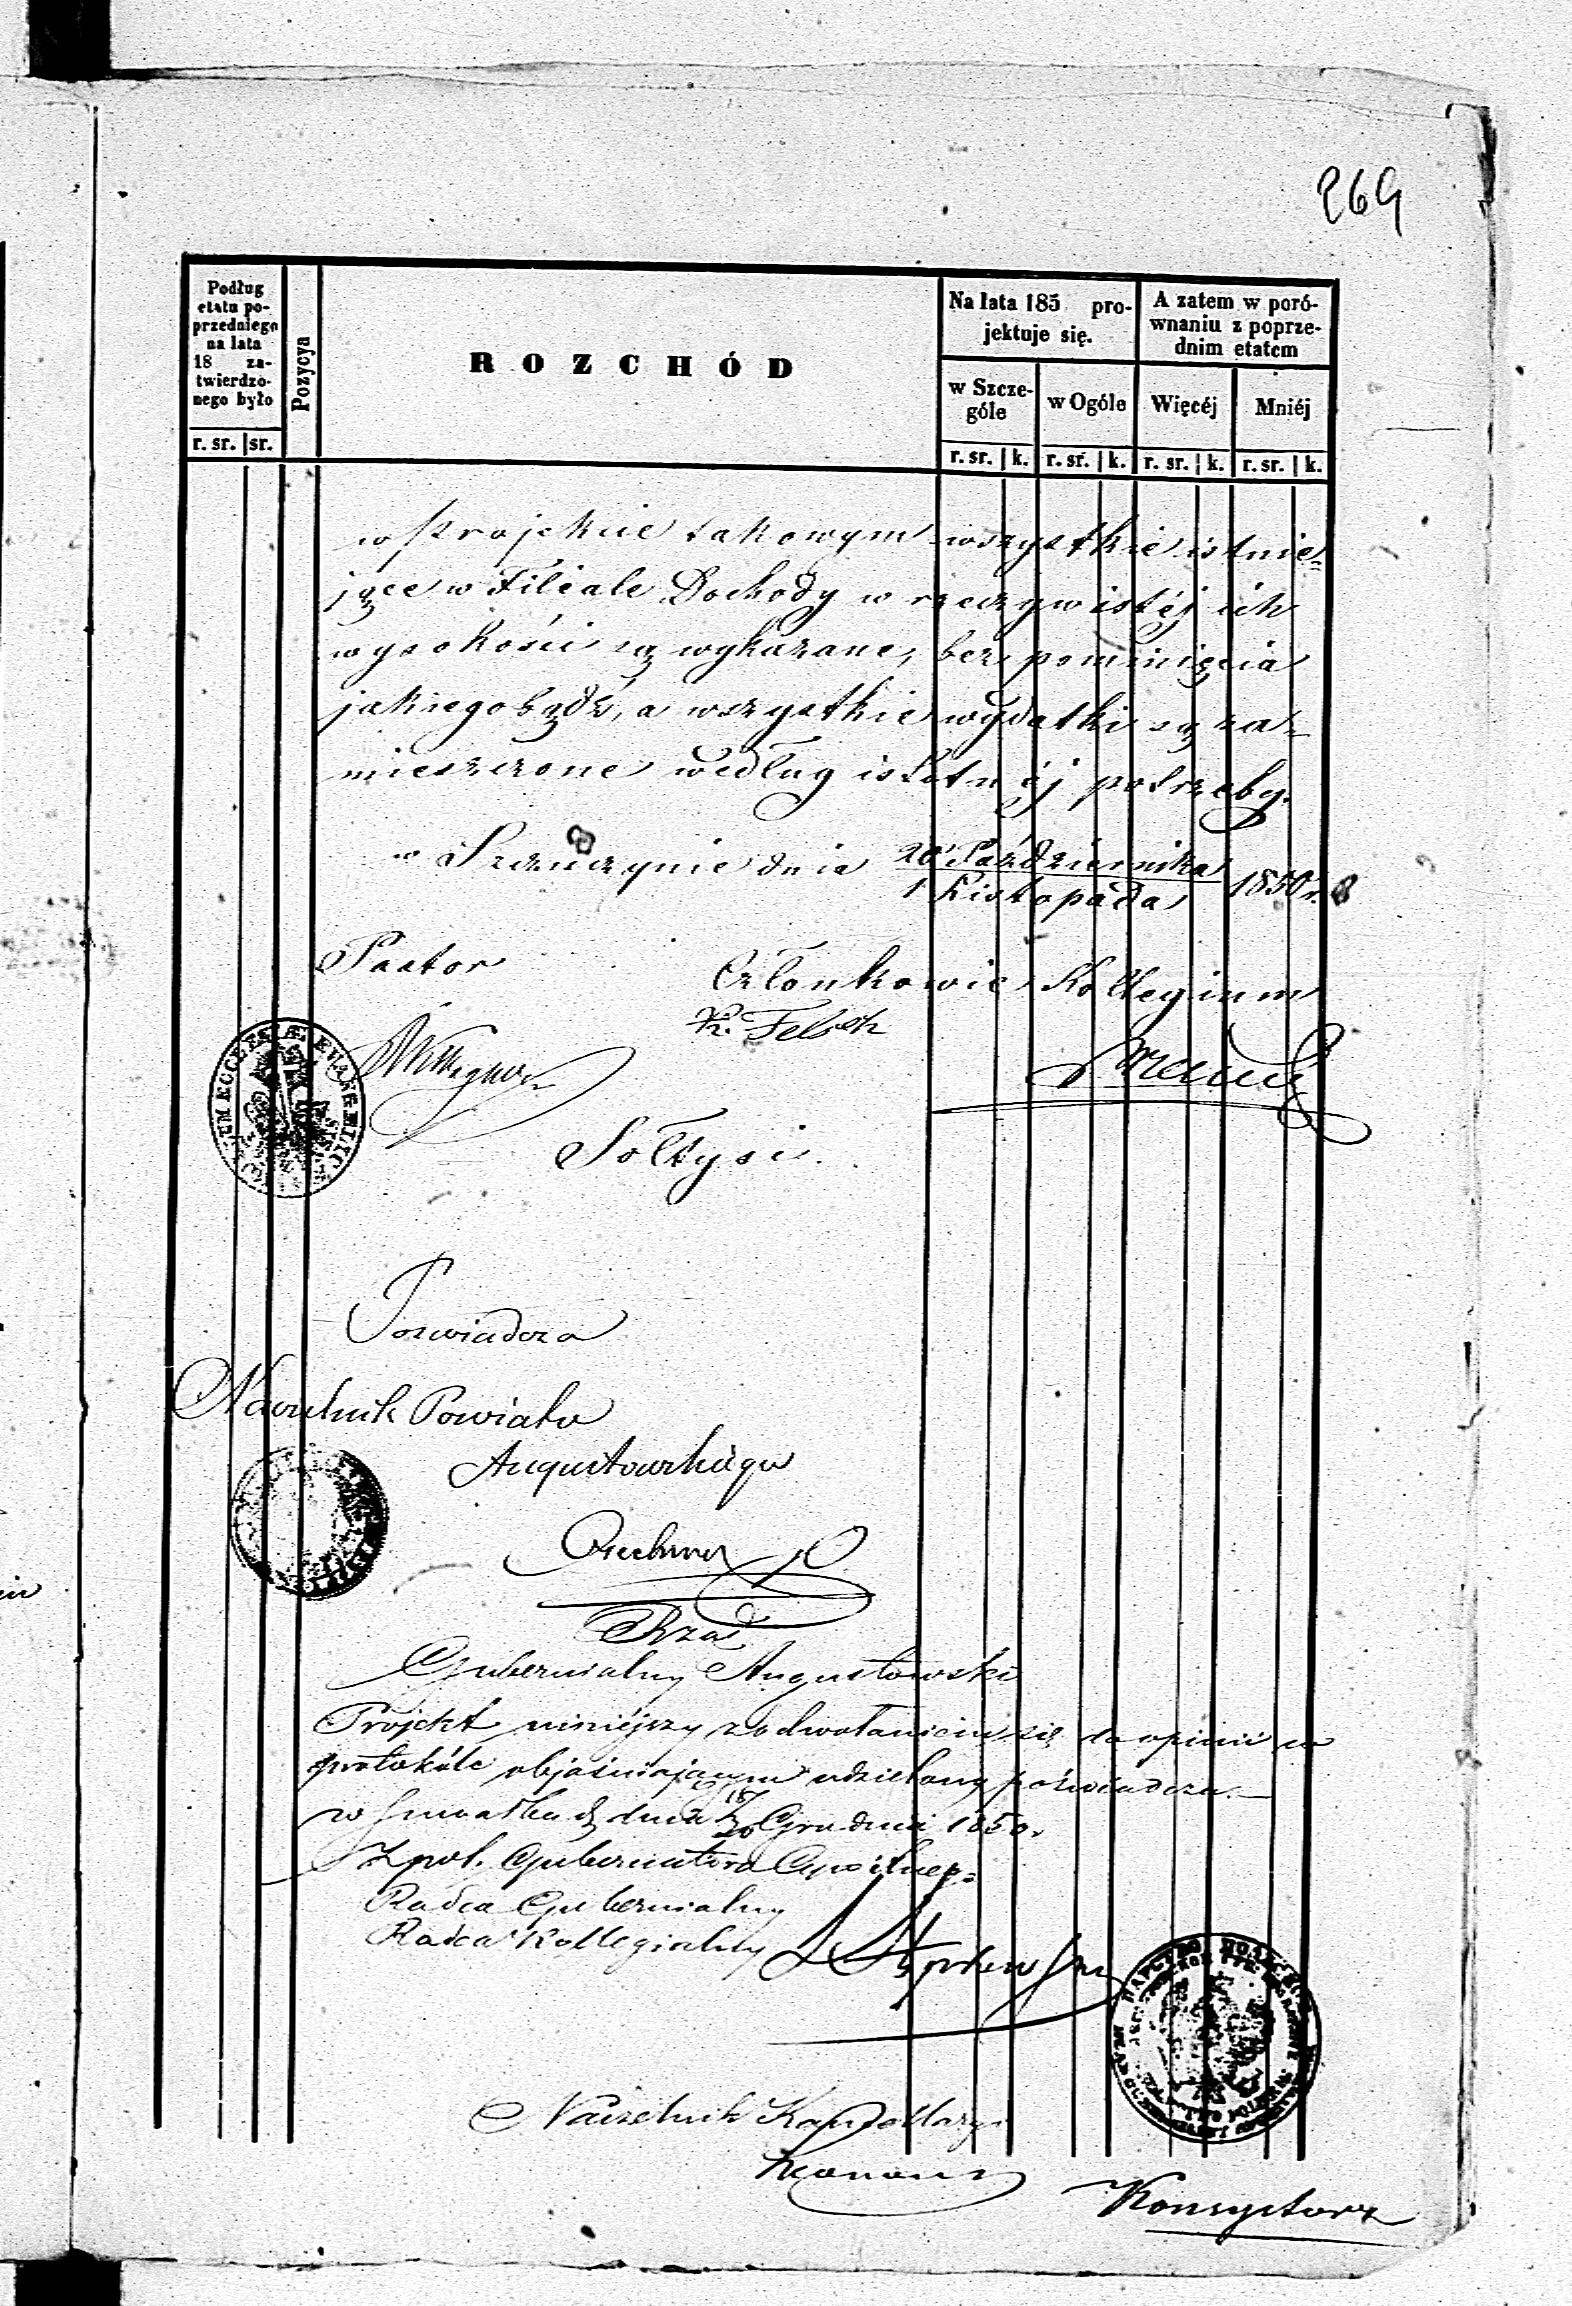 269
Podług
etatu po-
przedniego
na lata
18 za-
twierdzo-
nego było
r. sr. sr.
Pozycya
ROZCHÓD
Na lata 185 pro-
jektuje się.
w Szcze-
góle
w Ogóle
r. sr. k. r. sr. k.
A zatem w poró-
wnaniu z poprze-
dnim etatem
Więcéj
Mniéj
r. sr. k. r. sr. k.
w Projekcie takowym wszystkie istnie=
jące w Filiale Dochody w rzeczywistéj ich
wysokości są wykazane, bez pominięcia
jakiegobądź, a wszystkie wydatki są za=
mieszczone według istotnéj potrzeby.
w Szczuczynie dnia 20 Października
1 Listopada 1850 r.
Pastor
Członkowie Kollegium
K. Felsch
Sołtysi.
Poświadcza
Naczelnik Powiatu
Augustowskiego
Rząd
Gubernialny Augustowski
Projekt niniéjszy z odwołaniem się do opinii w
protokóle objaśniającym udzielonéj poświadcza.
w Suwałkach dnia 18/30 Grudnia 1850.
Z pol. Gubernatora Cywilneg=
Radca Gubernialny
Radca Kollegialny
Naczelnik Kancellaryi
Konsystorz